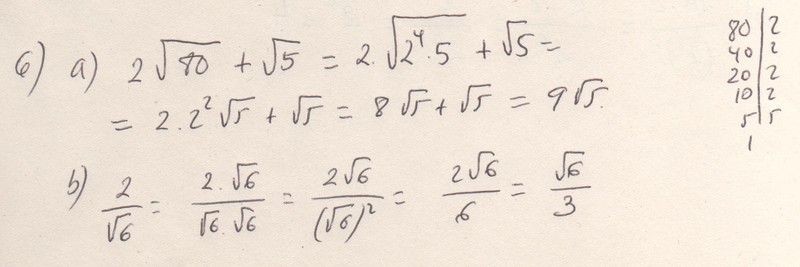 6) a) 2√80 + √5 = 2·√(2⁴·5) + √5 =
= 2·2²√5 + √5 = 8√5 + √5 = 9√5.
b) 2/√6 = 2·√6/√6·√6 = 2√6/(√6)² = 2√6/6 = √6/3
80|2
40|2
20|2
10|2
5|5
1